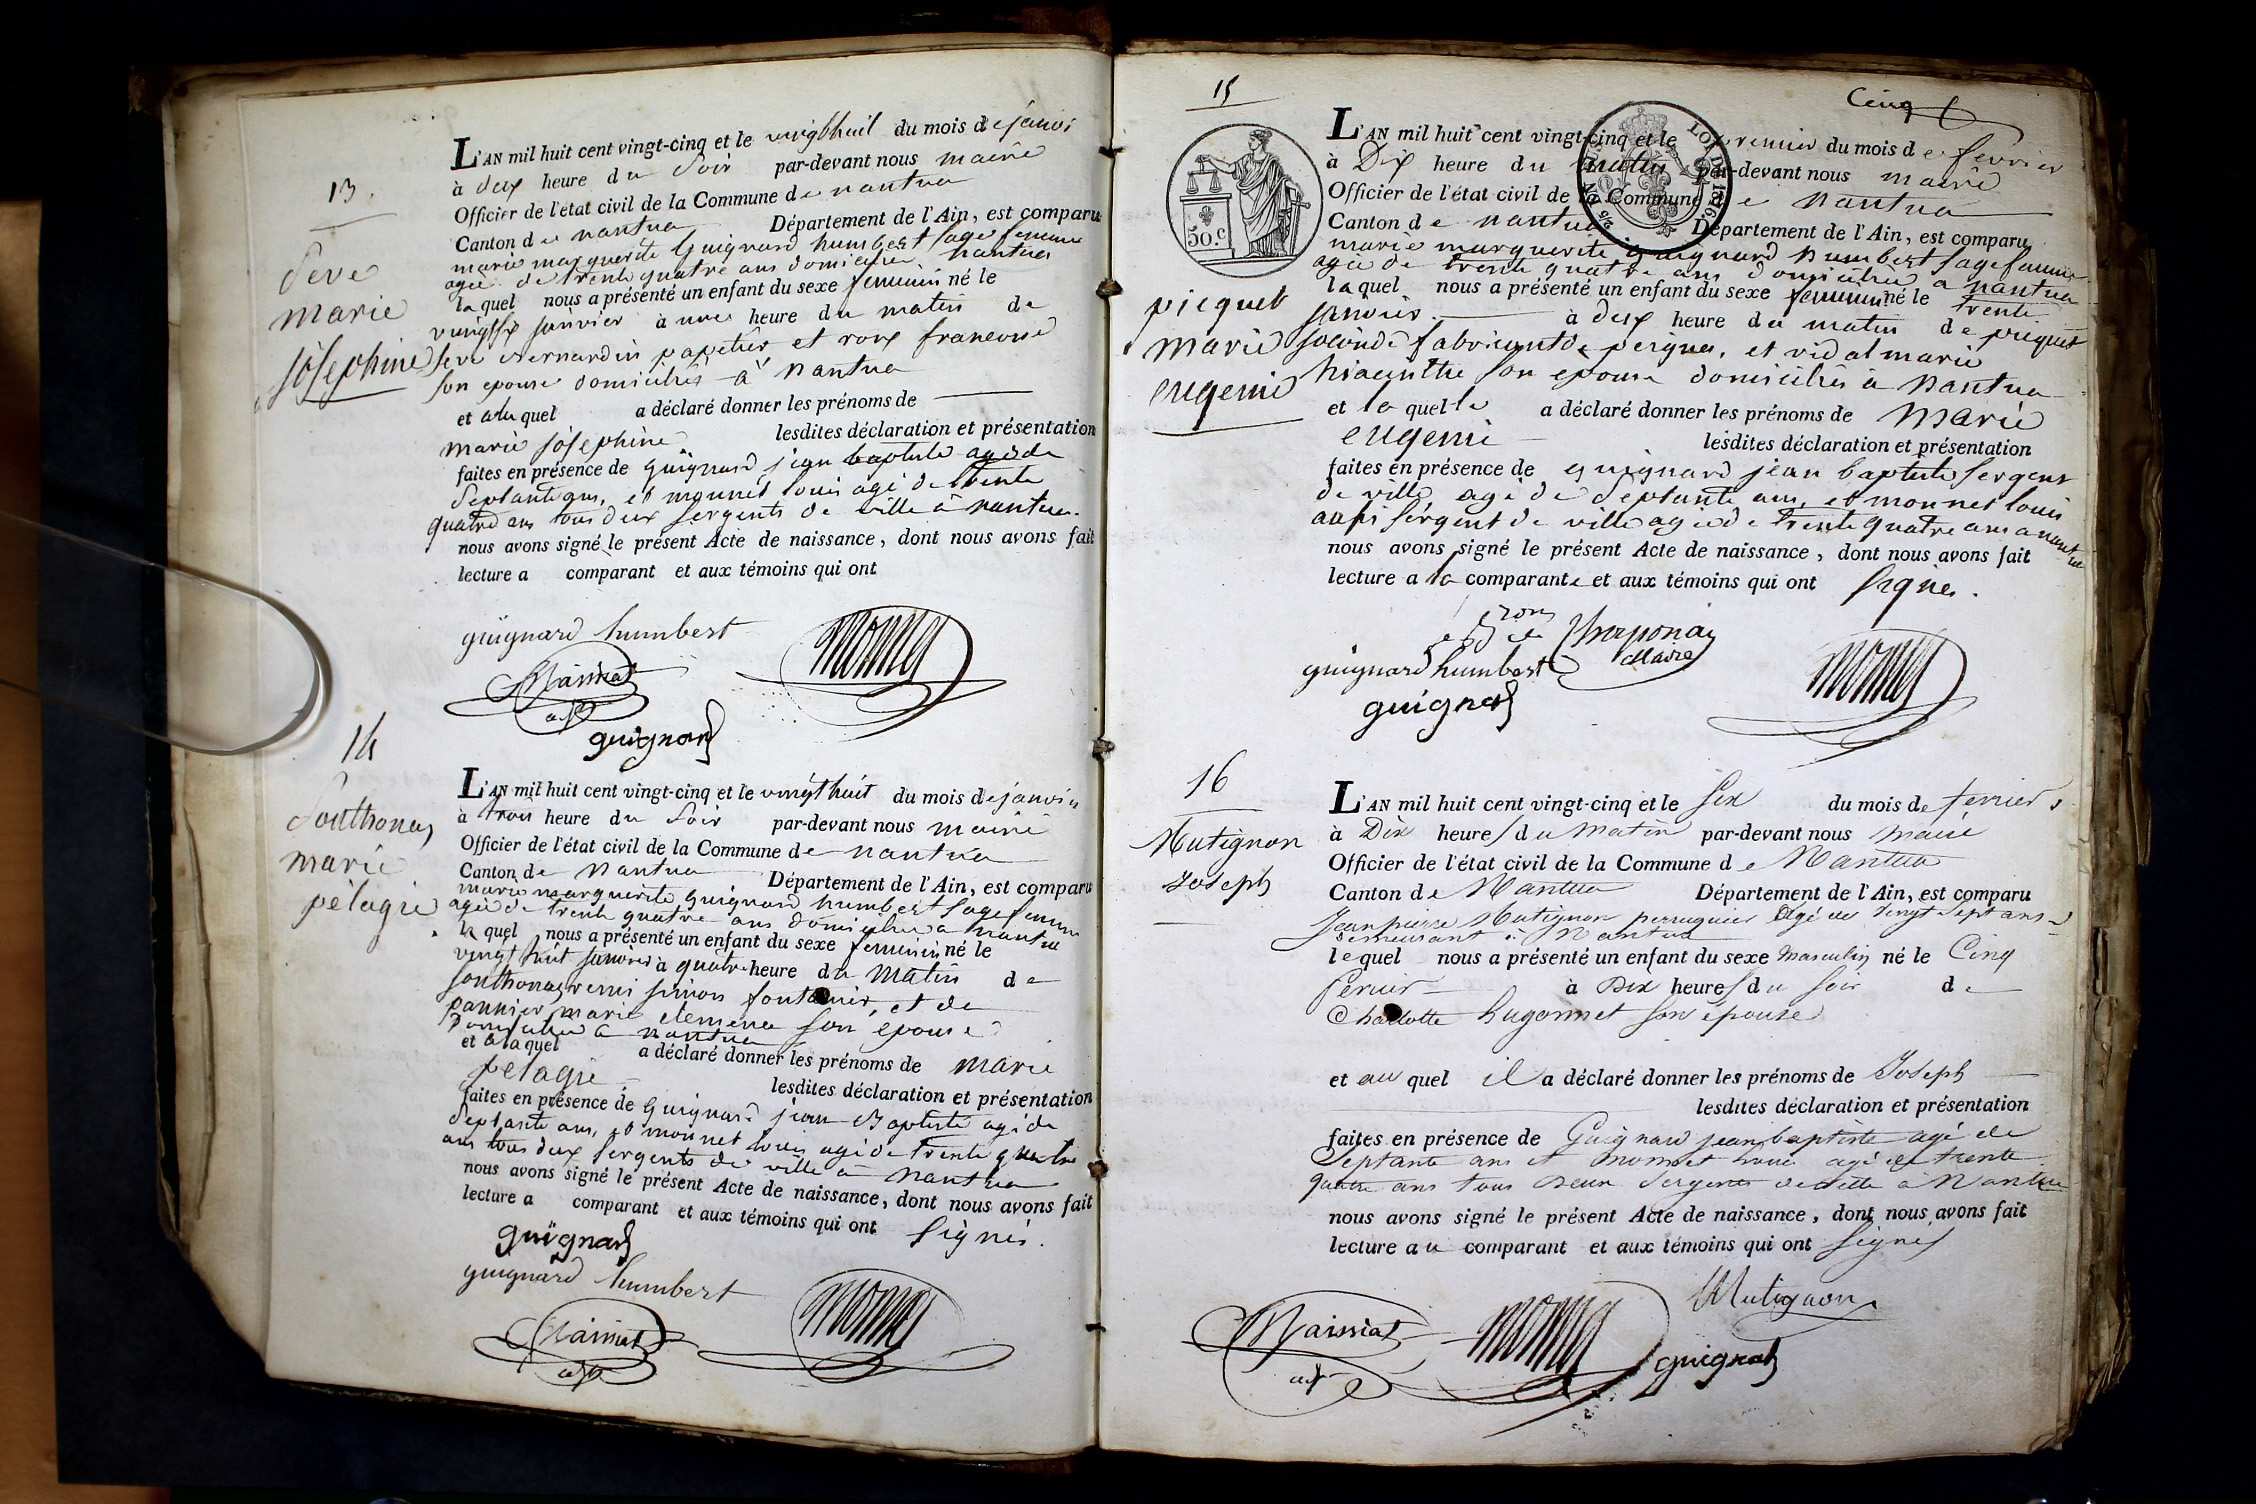 13.
Seve
marie
joséphine
L'AN mil huit cent vingt-cinq et le vingthuit du mois de janvi
à deux heure du Soir par-devant nous maire
Officier de l'état civil de la Commune de nantua
Canton de nantua Département de l'Ain, est comparu
marie marguerite Guignard humbert sage femme
agée de trente quatre ans domiciliée nantua
laquel nous a présenté un enfant du sexe feminin né le
janvier à une heure du matin de
Seve Bernardin papetier et roux francoise
son epouse domiciliés à nantua
et a laquel a déclaré donner les prénoms de
marie joséphine lesdites déclaration et présentation
faites en présence de guignard jean baptiste agé de
Septante ans, et monnet louis agé de trente
quatre ans tous deux sergents de ville à nantua.
nous avons signé le présent Acte de naissance, dont nous avons fait
lecture a comparant et aux témoins qui ont
guignard humbert
monnet
Maissiat
adj
guignard
14
Southonax
marie
pélagie
L'AN mil huit cent vingt-cinq et le vingt huit du mois de janvier
à trois heure du Soir par-devant nous maire
Officier de l'état civil de la Commune de nantua
Canton de nantua Département de l'Ain, est comparu
marie marguerite guignard humbert sage femme
agée de trente quatre ans domiciliée a nantua
la quel nous a présenté un enfant du sexe feminin né le
vingt huit janvier à quatre heure du matin de
southonax remi simon et de
pannier marie clemence son epouse
domiciliés a nantua
et a laquel a déclaré donner les prénoms de marie
pelagie lesdites déclaration et présentation
faites en présence de guignard jean Baptiste agé de
septante ans, et monnet louis agé de trente quatre
ans tous deux sergents de ville à nantua
nous avons signé le présent Acte de naissance, dont nous avons fait
lecture a comparant et aux témoins qui ont signés.
guignard
guignard humbert
monnet
Maissiat
adj
Cinq
15
50.c
LOI DE 1816.
picquet
marie
eugenie
L'AN mil huit cent vingt-cinq et le premier du mois de fevrier
à Dix heure du matin par-devant nous maire
Officier de l'état civil de la Commune de nantua
Canton de nantua Département de l'Ain, est comparu
marie marguerite guignard humbert sage femme
agée de trente quatre ans domiciliée a nantua
laquel nous a présenté un enfant du sexe feminin né le trente
janvier à deux heure du matin de picquet
fabricant de peignes, et vidal marie
hiacinthe son epouse domiciliés à nantua
et la quelle a déclaré donner les prénoms de marie
eugenie lesdites déclaration et présentation
faites en présence de guignard jean baptiste sergent
de ville agé de septante ans, et monnet louis
aussi sergent de ville agé de trente quatre ans a nantua
nous avons signé le présent Acte de naissance, dont nous avons fait
lecture a la comparante et aux témoins qui ont signés.
Maire
guignard humbert
guignard
monnet
16
Mutignon
Joseph
L'AN mil huit cent vingt-cinq et le six du mois de fevrier
à Dix heures du matin par-devant nous maire
Officier de l'état civil de la Commune de Nantua
Canton de Nantua Département de l'Ain, est comparu
Jean pierre Mutignon perruquier agé de vingt sept ans
demeurant à Nantua
lequel nous a présenté un enfant du sexe masculin né le Cinq
fevrier à Dix heures du soir de
Charlotte hugonnet son épouse
et au quel il a déclaré donner les prénoms de Joseph
lesdites déclaration et présentation
faites en présence de Guignard jean baptiste agé de
Septante ans et monnet Louis agé de trente
quatre ans tous Deux Sergents de ville à Nantua
nous avons signé le présent Acte de naissance, dont nous avons fait
lecture au comparant et aux témoins qui ont signés
Mutignon
Maissiat
adj
monnet
guignard